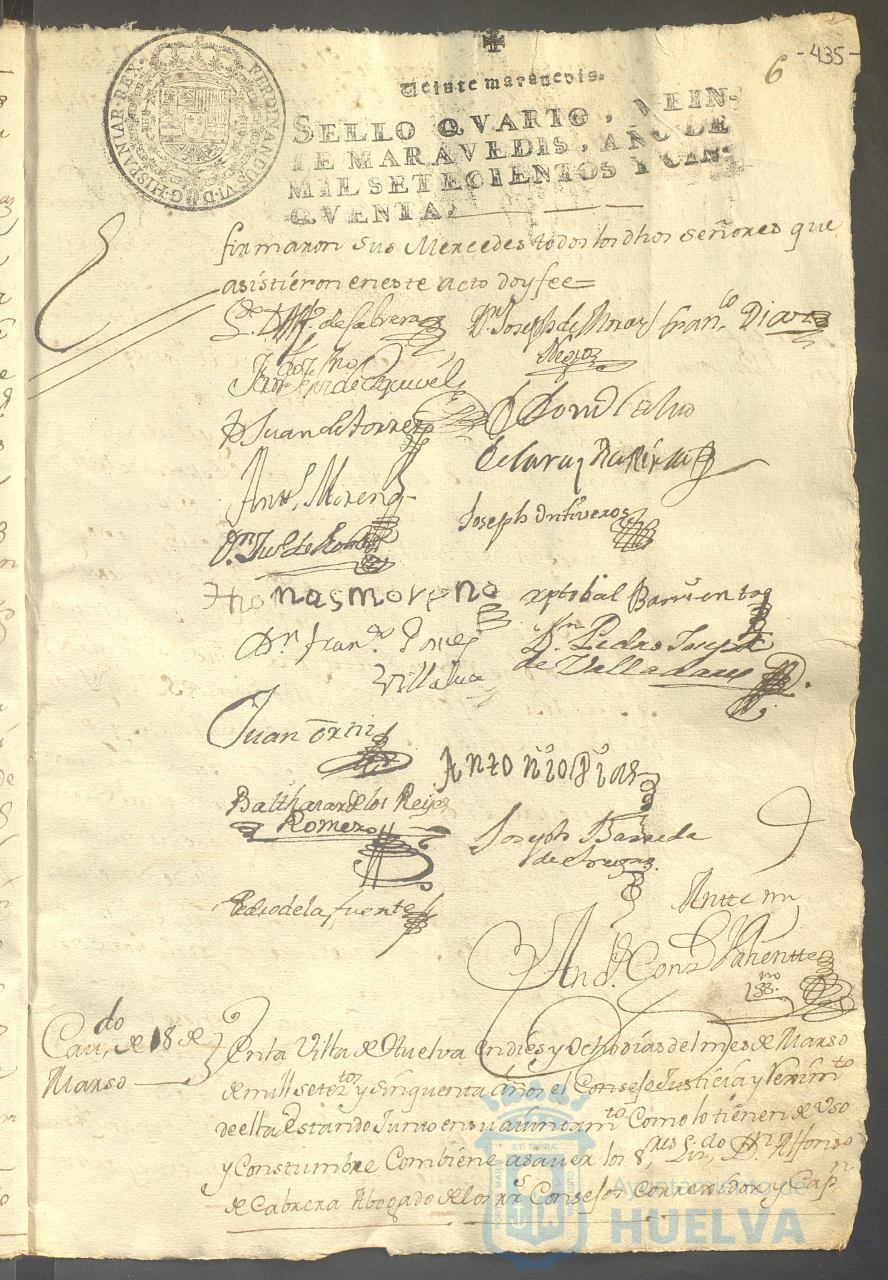 -435-
6
FERDINANDUS·VI·D·G·HISPANIAR·REX·
Veinte maravedis.
SELLO QVARTO, VEIN-
TE MARAVEDIS, AÑO DE
MIL SETECIENTOS Y CIN-
QVENTA.
firmaron Sus Mercedes todos los dhos Señores que
asistieron en este acto doy fee=
de Cabrera Dn Joseph de Franco Diaz
de Esquivel
Dn Juan de Torres
Anto Moreno
Joseph Ontiveros
Thomas moreno xptobal Barrientos
Dn Franco Ponce Dn Pedro Joseph
Villalva de Valladares
Juan Ortiz
Antonio Dias
Balthasar de los Reyes
Romero
Joseph Barreda
Pedro de la fuente
Ante mi
Cavdo de 18 de
Marso
Enla Villa de Huelva en dies y Ocho dias del mes de Marso
de mill setetos y sinquenta años el Consejo Justicia y Regimto
de ella Estando Junto en su aiuntamto Como lo tienen de Uso
y Constumbre Combiene a saver los Sres Lizdo Dn Alfonso
de Cabrera Abogado de los Rs Consejos Correxidor y Capn
Ayuntamiento de
HUELVA